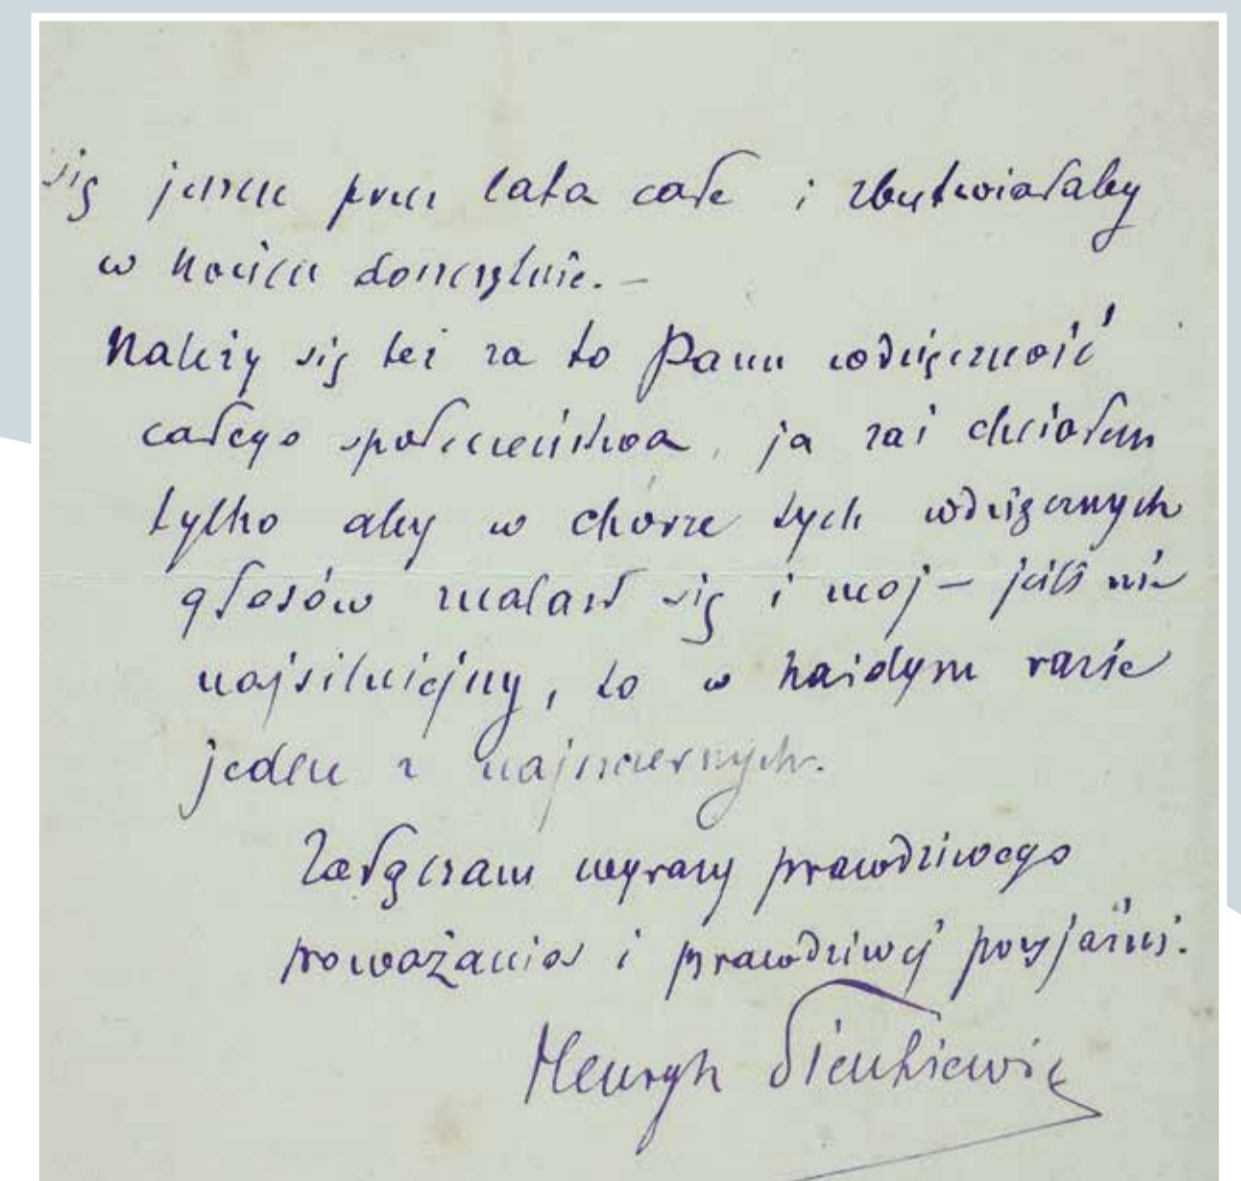 się jeszcze przez lata całe i zbutwiałaby
w końcu doszczętnie. –
Należy się też za to Panu wdzięczność
całego społeczeństwa, ja zaś chciałem
tylko aby w chórze tych wdzięcznych
głosów znalazł się i mój – jeśli nie
najsilniejszy, to w każdym razie
jeden z najszczerszych.
Załączam wyrazy prawdziwego
poważania i prawdziwej przyjaźni.
Henryk Sienkiewicz